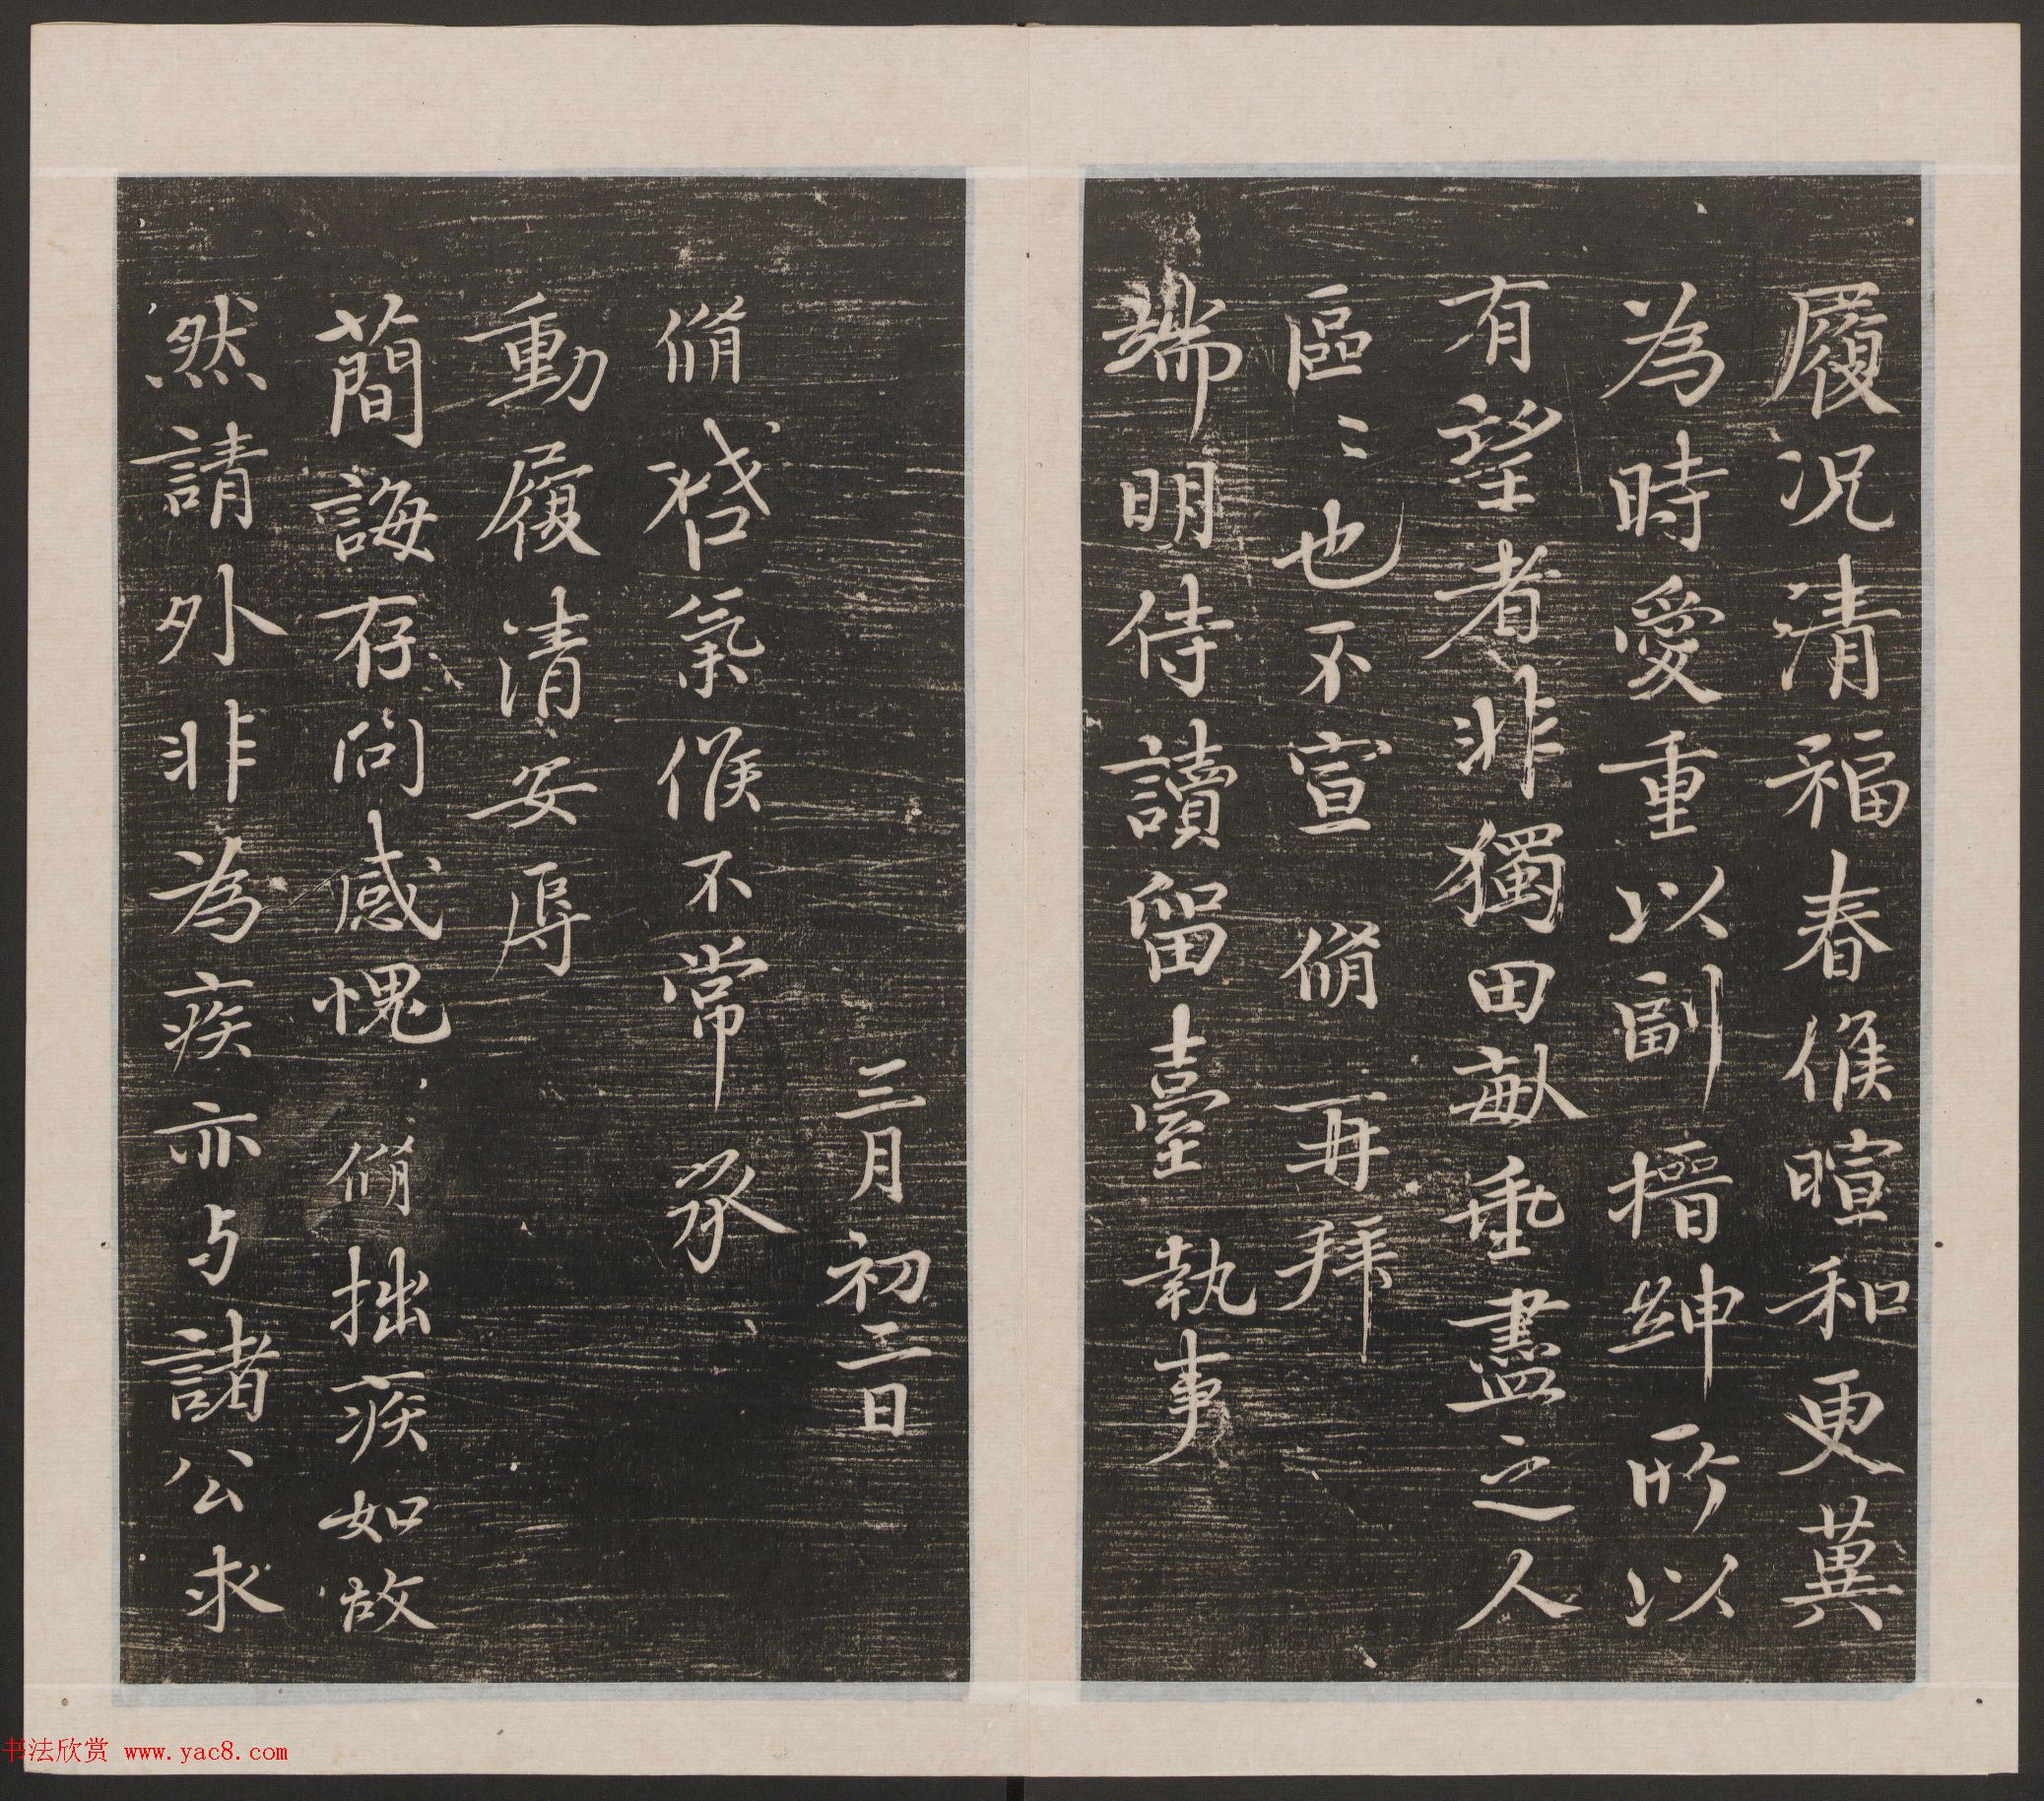 履况清福春候暄和更兾
為時愛重以副搢紳所以
有望者非獨田畝垂盡之人
區〻也不宣脩再拜
端明侍讀留臺執事
三月初二日
脩啓氣候不常承
動履清安辱
蕳誨存問感愧脩拙疾如故
然請外非為疾亦与諸公求
书法欣赏 www.yac8.com